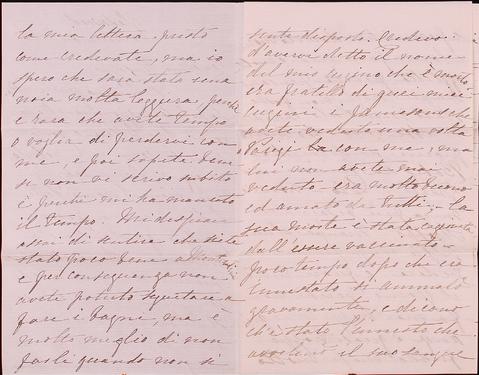 la mia lettera presto
come credevate, ma io
spero che sarà stata una
noia molto leggera perchè
è rara che avete tempo
o voglia di perdervi con
me, e poi sapete bene
se non vi scrivo subito
è perchè mi ha mancato
il tempo. Mi dispiace
assai di sentire che siete
stato poco bene a
e per conseguenza non
avete potuto seguitare a
fare i bagni, ma è
molto meglio di non
farli quando non si
sente disposto. Credevo
d'avervi detto il nome
del mio cugino che è morto
era fratello di quei miei
cugini i che
avete veduto una volta
con me, ma
lui non avete mai
veduto era molto buono
ed amato da tutti. La
sua morte è stata
dall'essere vaccinato
poco tempo dopo che era
innestato si ammalò
gravamente, e dicono
ch'è stato l'innesto che
il suo sangue